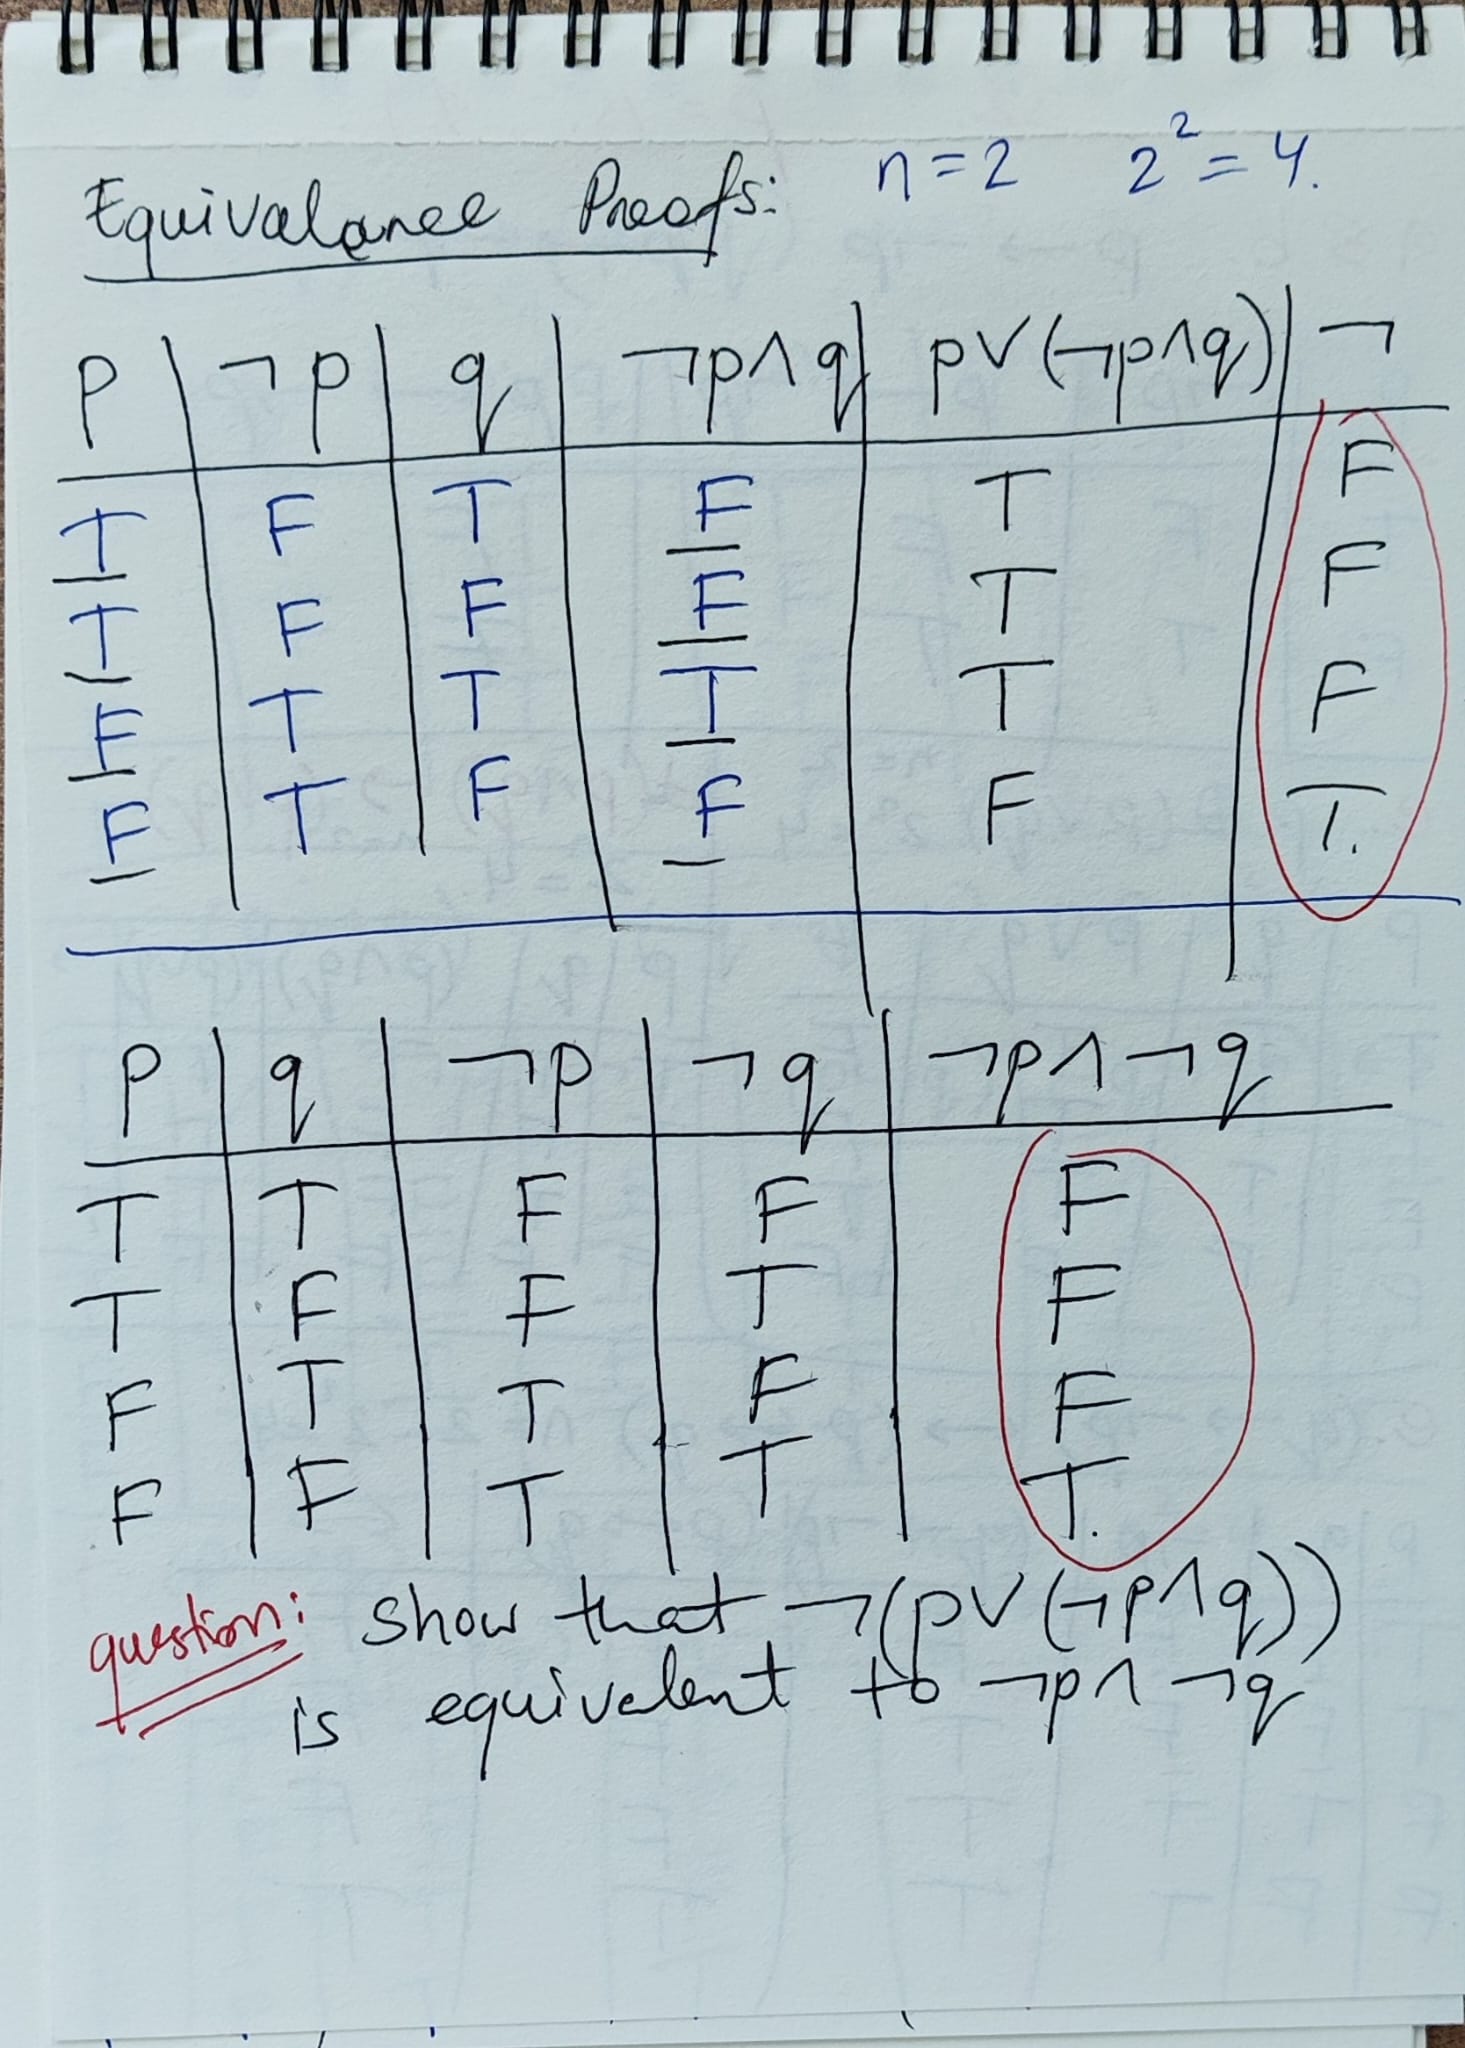 Equivalance Proofs: n=2 2²=4.
p | ¬p | q | ¬p∧q | p∨(¬p∧q) | ¬
T | F | T | F | T | F
T | F | F | F | T | F
F | T | T | T | T | F
F | T | F | F | F | T.
p | q | ¬p | ¬q | ¬p∧¬q
T | T | F | F | F
T | F | F | T | F
F | T | T | F | F
F | F | T | T | T.
question: show that ¬(p∨(¬p∧q))
is equivalent to ¬p∧¬q